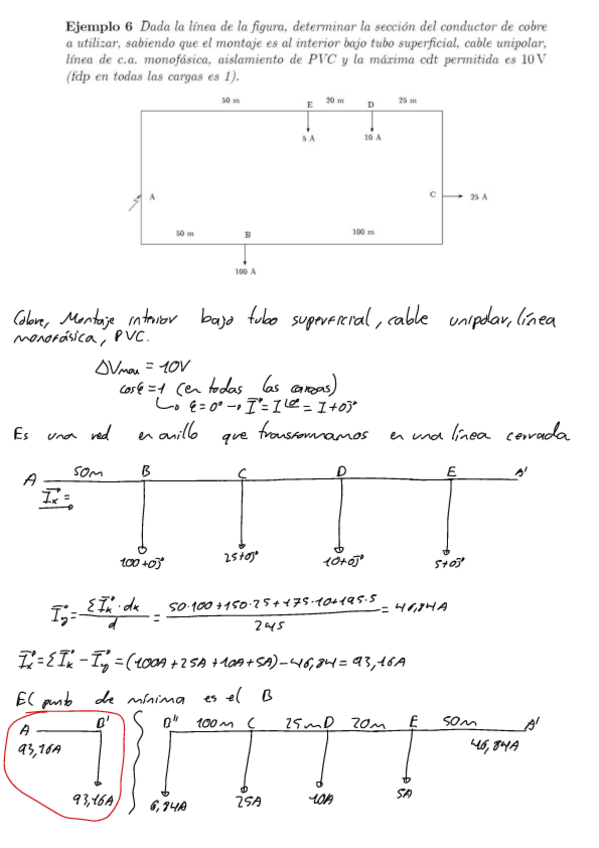 Ejemplo 6 Dada la línea de la figura, determinar la sección del conductor de cobre
a utilizar, sabiendo que el montaje es al interior bajo tubo superficial, cable unipolar,
línea de c.a. monofásica, aislamiento de PVC y la máxima cdt permitida es 10 V
(fdp en todas las cargas es 1).
50 m E 20 m D 25 m
5 A 10 A
A C 25 A
50 m B 100 m
100 A
Cobre, Montaje interior bajo tubo superficial, cable unipolar, línea
monofásica, PVC.
ΔVmax = 10V
cosφ = 1 (en todas las cargas)
↳ φ = 0° → I⃗ = I∠φ = I + 0j
Es una red en anillo que transformamos en una línea cerrada
A 50m B C D E A'
I⃗x =
100+0j 25+0j 10+0j 5+0j
I⃗y = ΣI⃗k · dk / d = 50·100+150·25+175·10+195·5 / 245 = 46,84A
I⃗x = ΣI⃗k − I⃗y = (100A + 25A + 10A + 5A) − 46,84 = 93,16A
El punto de mínima es el B
A B' B'' 100m C 25m D 20m E 50m A'
93,16A 46,84A
93,16A 6,84A 25A 10A 5A